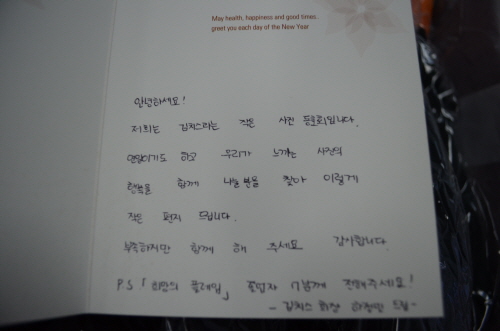 May health, happiness and good times
greet you each day of the New Year
안녕하세요!
저희는 김치스라는 작은 사진 동호회입니다.
연말이기도 하고 우리가 느끼는 사진의
행복을 함께 나눌 분을 찾아 이렇게
작은 편지 드립니다.
부족하지만 함께 해 주세요 감사합니다.
P.S 「희망의 프레임」 졸업자 7분께 전해주세요!
- 김치스 회장 하정민 드림 -